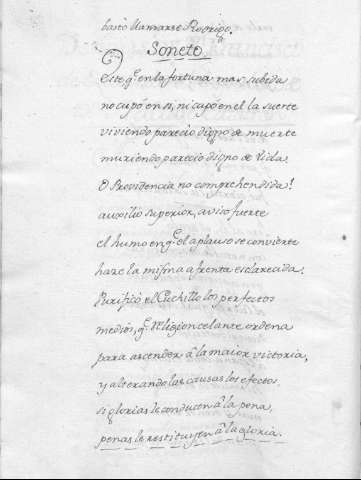 bastò llamarse Rodrigo.
Soneto
Este q.e en la fortuna mas subida
no cupò en si, ni cupò en el la suerte
viviendo pareciò digno de muerte
muriendo pareciò digno de vida.
O Providencia no comprehendida!
auxilio superior, aviso fuerte
el humo en q.e el aplauso se convierte
haze la misma afrenta esclarecida.
Purificò el Cuchillo los perfectos
medios, q.e Religion celante ordena
para ascender à la maior victoria,
y alterando las causas los efectos
si glorias le conducen à la pena,
penas le restituyen à la gloria.